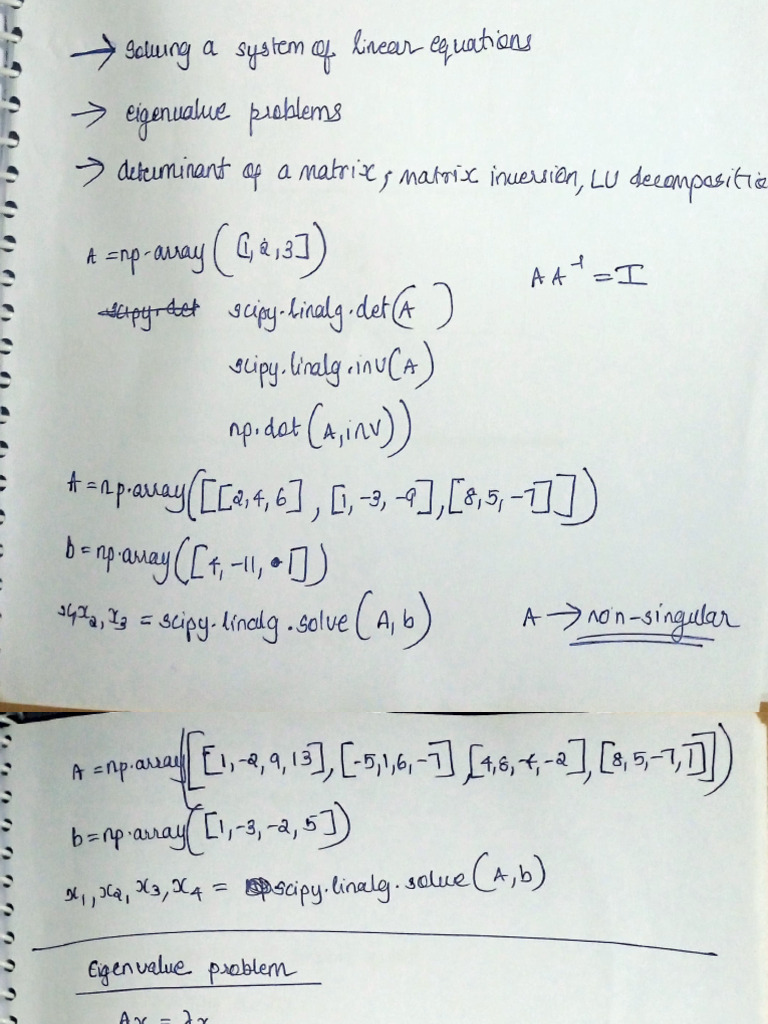 → solving a system of linear equations
→ eigenvalue problems
→ determinant of a matrix, matrix inversion, LU decompositio
A = np.array([1, 2, 3])
A A⁻¹ = I
scipy.det scipy.linalg.det(A )
scipy.linalg.inv(A)
np.dot(A, inv))
A = np.array([[2, 4, 6], [1, -3, -9], [8, 5, -7]])
b = np.array([4, -11, 1])
x₁, x₂, x₃ = scipy.linalg.solve(A, b)
A → non-singular
A = np.array([[1, -2, 9, 13], [-5, 1, 6, -7], [4, 8, -4, -2], [8, 5, -7, 1]])
b = np.array([1, -3, -2, 5])
x₁, x₂, x₃, x₄ = scipy.linalg.solve(A, b)
Eigenvalue problem
Ax = λx